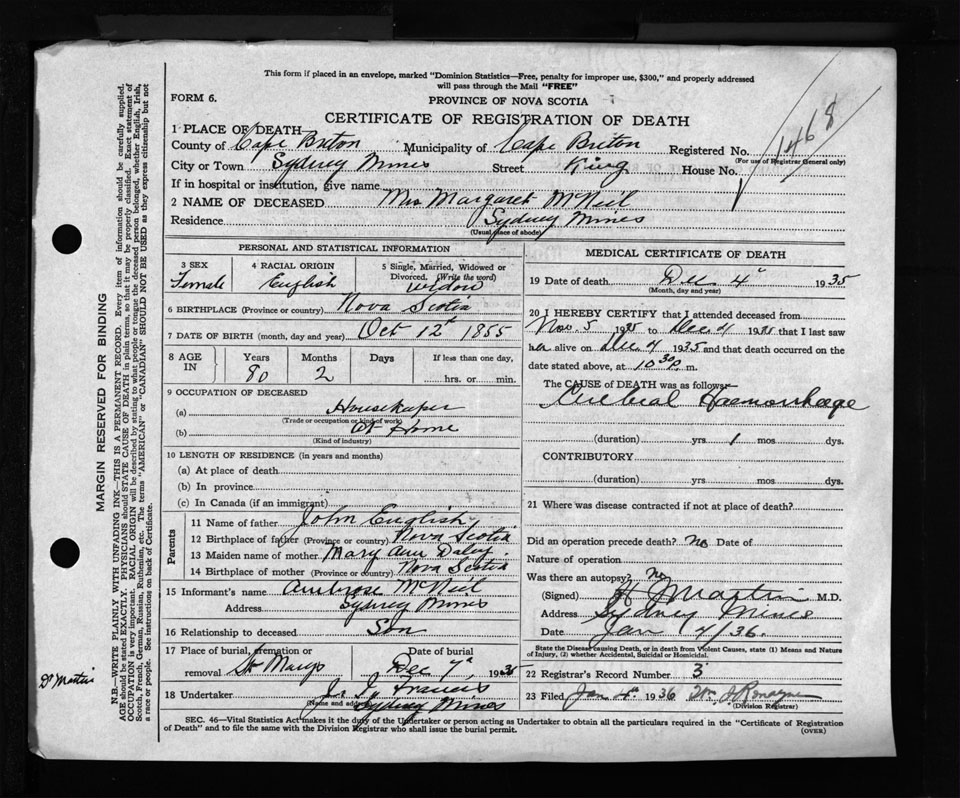 This form if placed in an envelope, marked "Dominion Statistics—Free, penalty for improper use, $300," and properly addressed
will pass through the Mail "FREE"
FORM 6.
PROVINCE OF NOVA SCOTIA
CERTIFICATE OF REGISTRATION OF DEATH
1468
1 PLACE OF DEATH—
County of Cape Breton Municipality of Cape Breton Registered No.
(For use of Registrar General only)
City or Town Sydney Mines Street King House No.
If in hospital or institution, give name
2 NAME OF DECEASED Mrs Margaret McNeil
Residence Sydney Mines
(Usual place of abode)
PERSONAL AND STATISTICAL INFORMATION
3 SEX Female
4 RACIAL ORIGIN English
5 Single, Married, Widowed or Divorced. (Write the word) Widow
6 BIRTHPLACE (Province or country) Nova Scotia
7 DATE OF BIRTH (month, day and year) Oct 12th 1855
8 AGE IN Years 80 Months 2 Days If less than one day, hrs. or min.
9 OCCUPATION OF DECEASED
(a) Housekeeper
(Trade or occupation or kind of work)
(b) At Home
(Kind of industry)
10 LENGTH OF RESIDENCE (in years and months)
(a) At place of death
(b) In province
(c) In Canada (if an immigrant)
Parents
11 Name of father John English
12 Birthplace of father (Province or country) Nova Scotia
13 Maiden name of mother Mary Ann Daley
14 Birthplace of mother (Province or country) Nova Scotia
15 Informant's name Ambrose McNeil
Address Sydney Mines
16 Relationship to deceased Son
17 Place of burial, cremation or removal St Marys
Date of burial Dec 7th 1935
18 Undertaker J. J. Francis
(Name and address) Sydney Mines
MEDICAL CERTIFICATE OF DEATH
19 Date of death Dec 4" 1935
(Month, day and year)
20 I HEREBY CERTIFY that I attended deceased from
Nov. 5 1935 to Dec 4 1935 that I last saw
her alive on Dec 4 1935 and that death occurred on the
date stated above, at 10 30 p. m.
The CAUSE of DEATH was as follows:—
Cerebral Haemorrhage
(duration) yrs 1 mos dys.
CONTRIBUTORY
(duration) yrs. mos. dys.
21 Where was disease contracted if not at place of death?
Did an operation precede death? no Date of
Nature of operation
Was there an autopsy? no
(Signed) Martin M.D.
Address Sydney Mines
Date Jan 4/36.
State the Disease causing Death, or in death from Violent Causes, state (1) Means and Nature
of Injury, (2) whether Accidental, Suicidal or Homicidal.
22 Registrar's Record Number 3
23 Filed Jan 4th 1936 Wm.
(Division Registrar)
SEC. 46—Vital Statistics Act makes it the duty of the Undertaker or person acting as Undertaker to obtain all the particulars required in the "Certificate of Registration
of Death" and to file the same with the Division Registrar who shall issue the burial permit.
(OVER)
MARGIN RESERVED FOR BINDING
N.B.—WRITE PLAINLY WITH UNFADING INK—THIS IS A PERMANENT RECORD. Every item of information should be carefully supplied.
AGE should be stated EXACTLY. PHYSICIANS should STATE CAUSE OF DEATH in plain terms, so that it may be properly classified. Exact statement of
OCCUPATION is very important. RACIAL ORIGIN will be described by stating to what people or tongue the deceased person belonged, whether English, Irish,
Scotch, French, German, Russian, Ruthenian, etc. The terms "AMERICAN" or "CANADIAN" SHOULD NOT BE USED as they express citizenship but not
a race or people. See instructions on back of Certificate.
Dr Martin